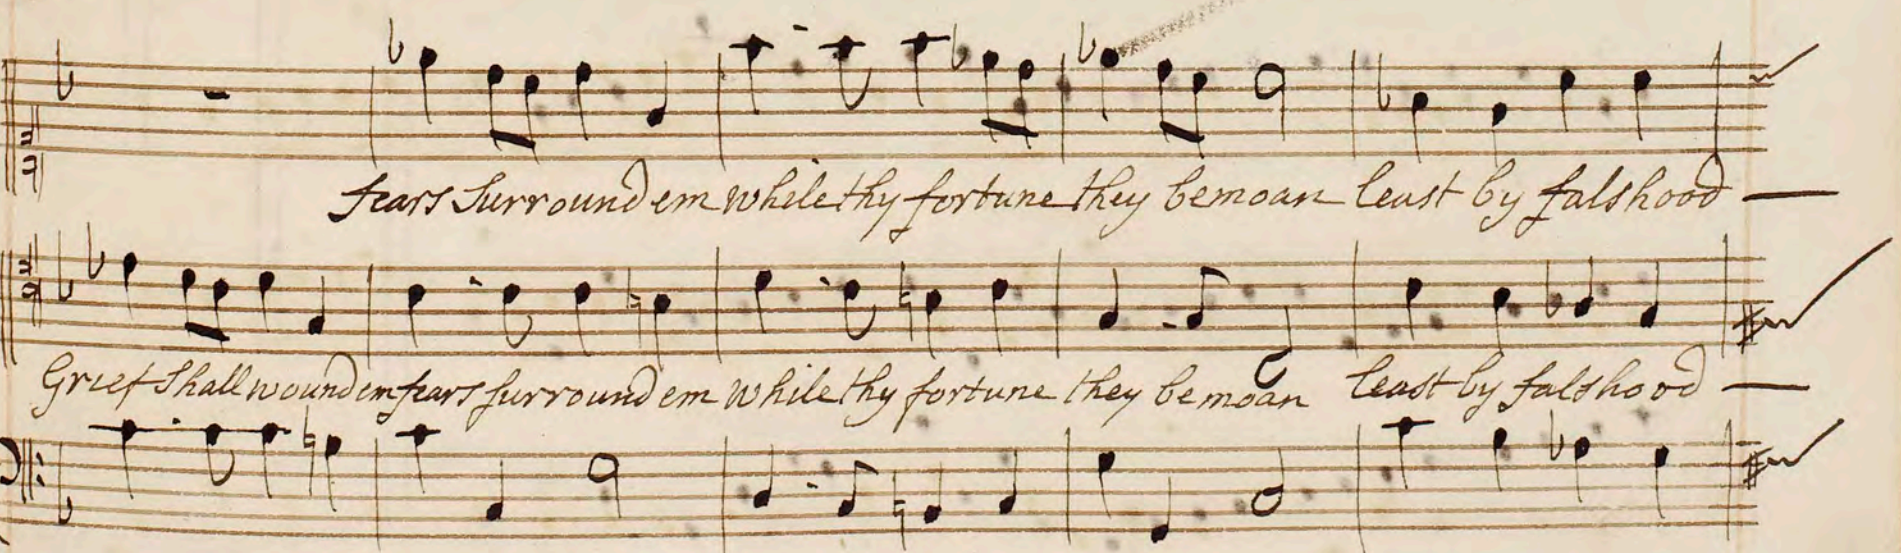 fears Surround em while thy fortune they bemoan least by falshood
Grief Shall wound em fears surround em while thy fortune they bemoan least by falshood